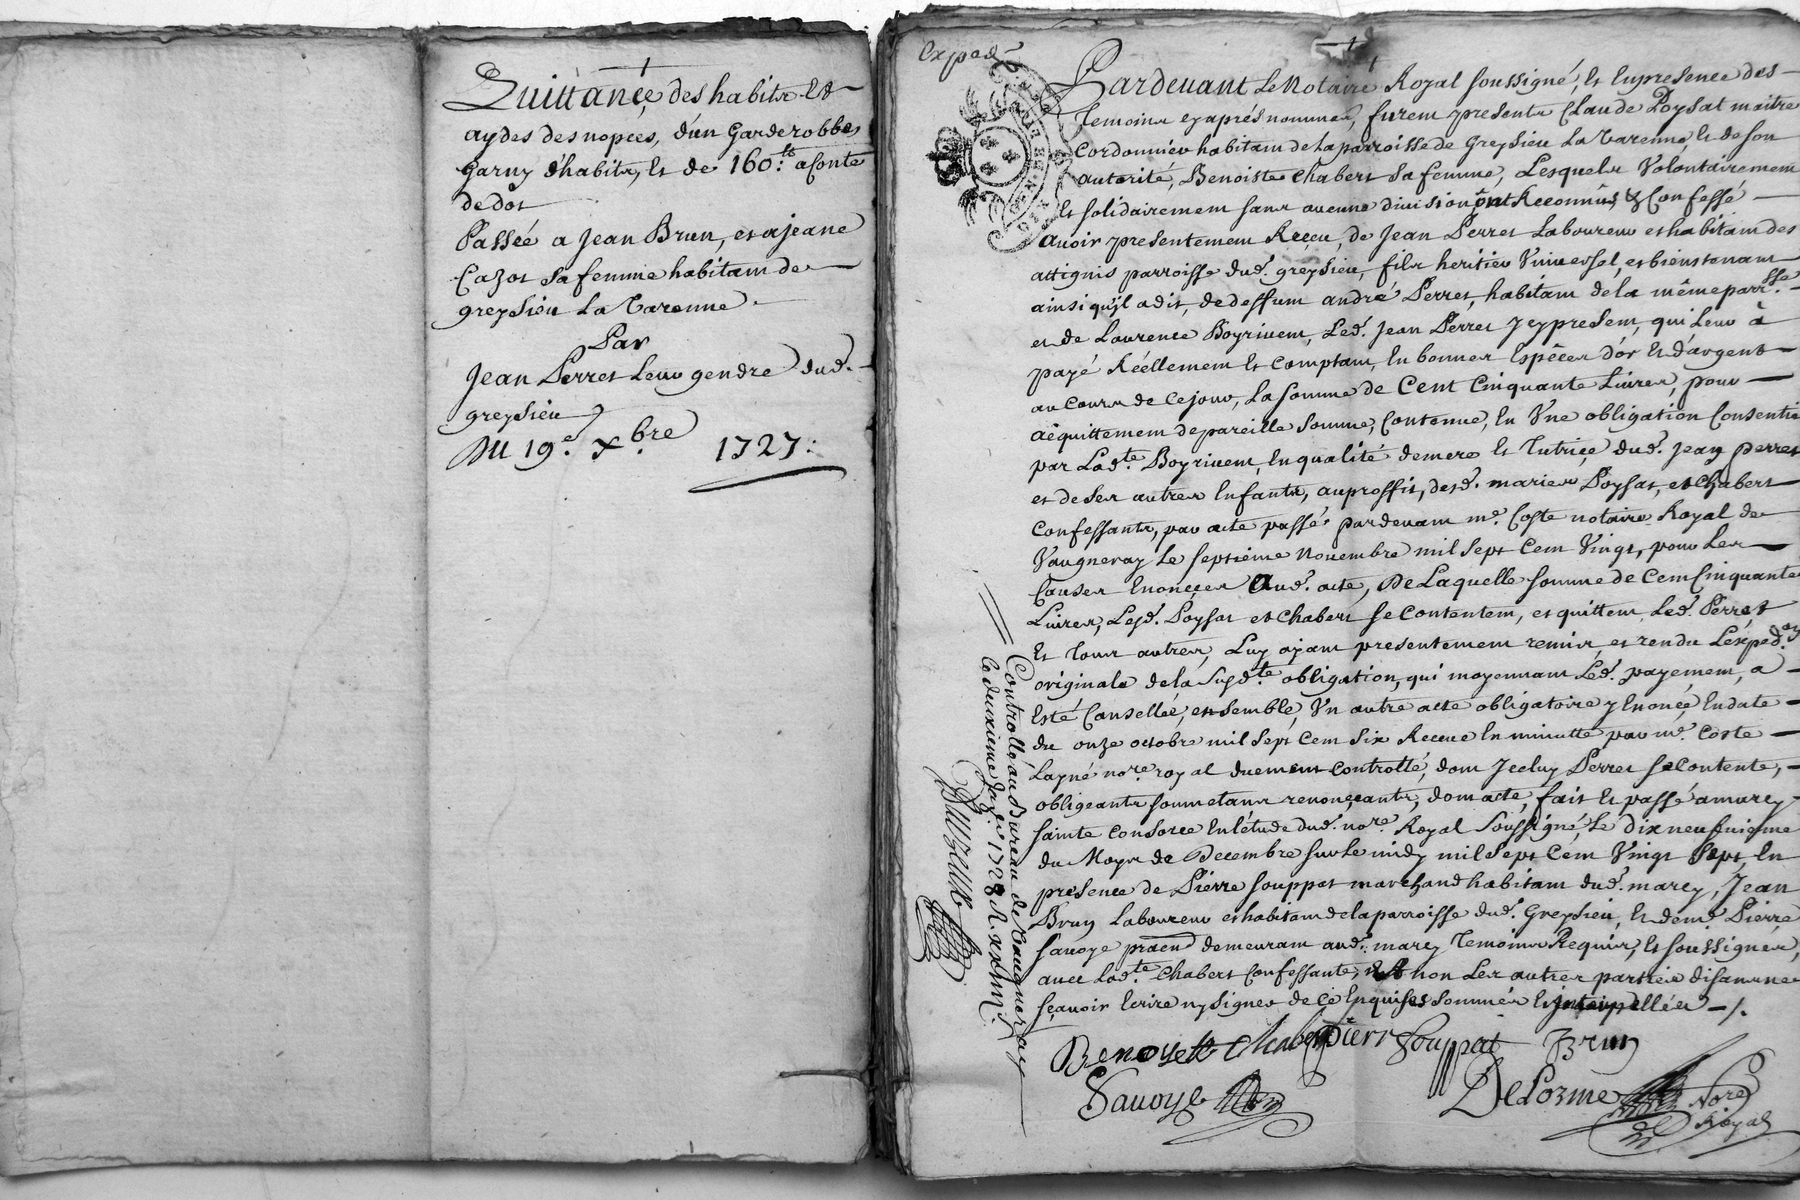 Quittance des habits et
aydes des nopces, d'un Garderobbe
garny d'habits, et de 160.lt a conte
de dot
Passée a Jean Brun, et a jeane
Cazot sa femme habitans de
greysieu La Varenne.
Par
Jean Perret Leur gendre dud.
greysieu
Du 19.e xbre. 1727.
Exped.
Pardevant Le Notaire Royal soussigné, Et En presence des
temoins cy aprés nommes, furent presents Claude Poysat maitre
Cordonnier habitant de la parroisse de Greysieu La Varenne, Et de son
autorité, Benoiste Chabert sa femme, Lesquels Volontairement
Et solidairement sans aucune division ont Reconnûs, & Confessé
avoir presentement Reçeu, de Jean Perret Laboureur et habitant des
attignis parroisse dud. greysieu, fils heritier Universel, et bienstenant
ainsi qu'il a dit, de deffunt andré Perret, habitant de la même parr.sse
et de Laurence Boyrivent, Led. Jean Perret jcy present, qui Leur à
payé Réellement Et Comptant, En bonnes Espêces d'or Et d'argent
au Cours de Ce jour, La somme de Cent Cinquante Livres, pour
acquittement de pareille somme, Contenue, En Une obligation Consentie
par Lad.te Boyrivent, En qualité de mere Et Tutrice dud. Jean Perret
et de ses autres Enfants, au proffit, desd. mariez Poysat, et Chabert
Confessants, par acte passé pardevant m.e Coste notaire Royal de
Vaugneray Le septiéme Novembre mil sept Cent Vingt, pour Les
Causes Enonçees Aud. acte, De Laquelle somme de Cent Cinquante
Livres, Lesd. Poysat et Chabert se Contentent, et quittent Led. Perret
Et tous autres, Luy ayant presentement remis, et rendu L'exped.on
originale de la susd.te obligation, qui moyennant Led. payement, a
Esté Cansellée, ensemble, Un autre acte obligatoire y Enoncé, En date
du onze octobre mil sept Cent six Receue En minutte par m.e Coste
Layné no.re royal duement Controllé, dont jceluy Perret se Contente,
obligeants soumetans renonçeants, dont acte, fait Et passé a marcy
sainte Consorce En L'étude dud. no.re Royal soussigné, Le dix neufvieme
du Moys de Decembre sur Le midy mil sept Cent Vingt sept, En
presence de Pierre Souppat marchand habitant dud. marcy, Jean
Brun Laboureur et habitant de la parroisse dud. Greysieu, Et de m.e Pierre
Savoye praen demeurant aud. marcy temoins Requis, Et soussignés,
avec Lad.te Chabert Confessante, Et non Les autres parties disant ne
sçavoir Ecrire ny signer de Ce Enquises sommés Et jnterpellées ./.
Benoyette Chabert Pierr Souppat Brun
Savoye Delorme No.re
Royal
Controllé au Bureau de Vaugneray
le deuxieme Janv.er 1728 R.